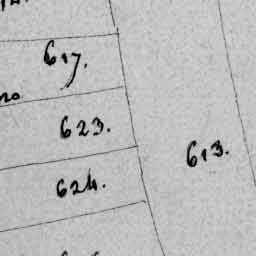 617.
623.
613.
624.